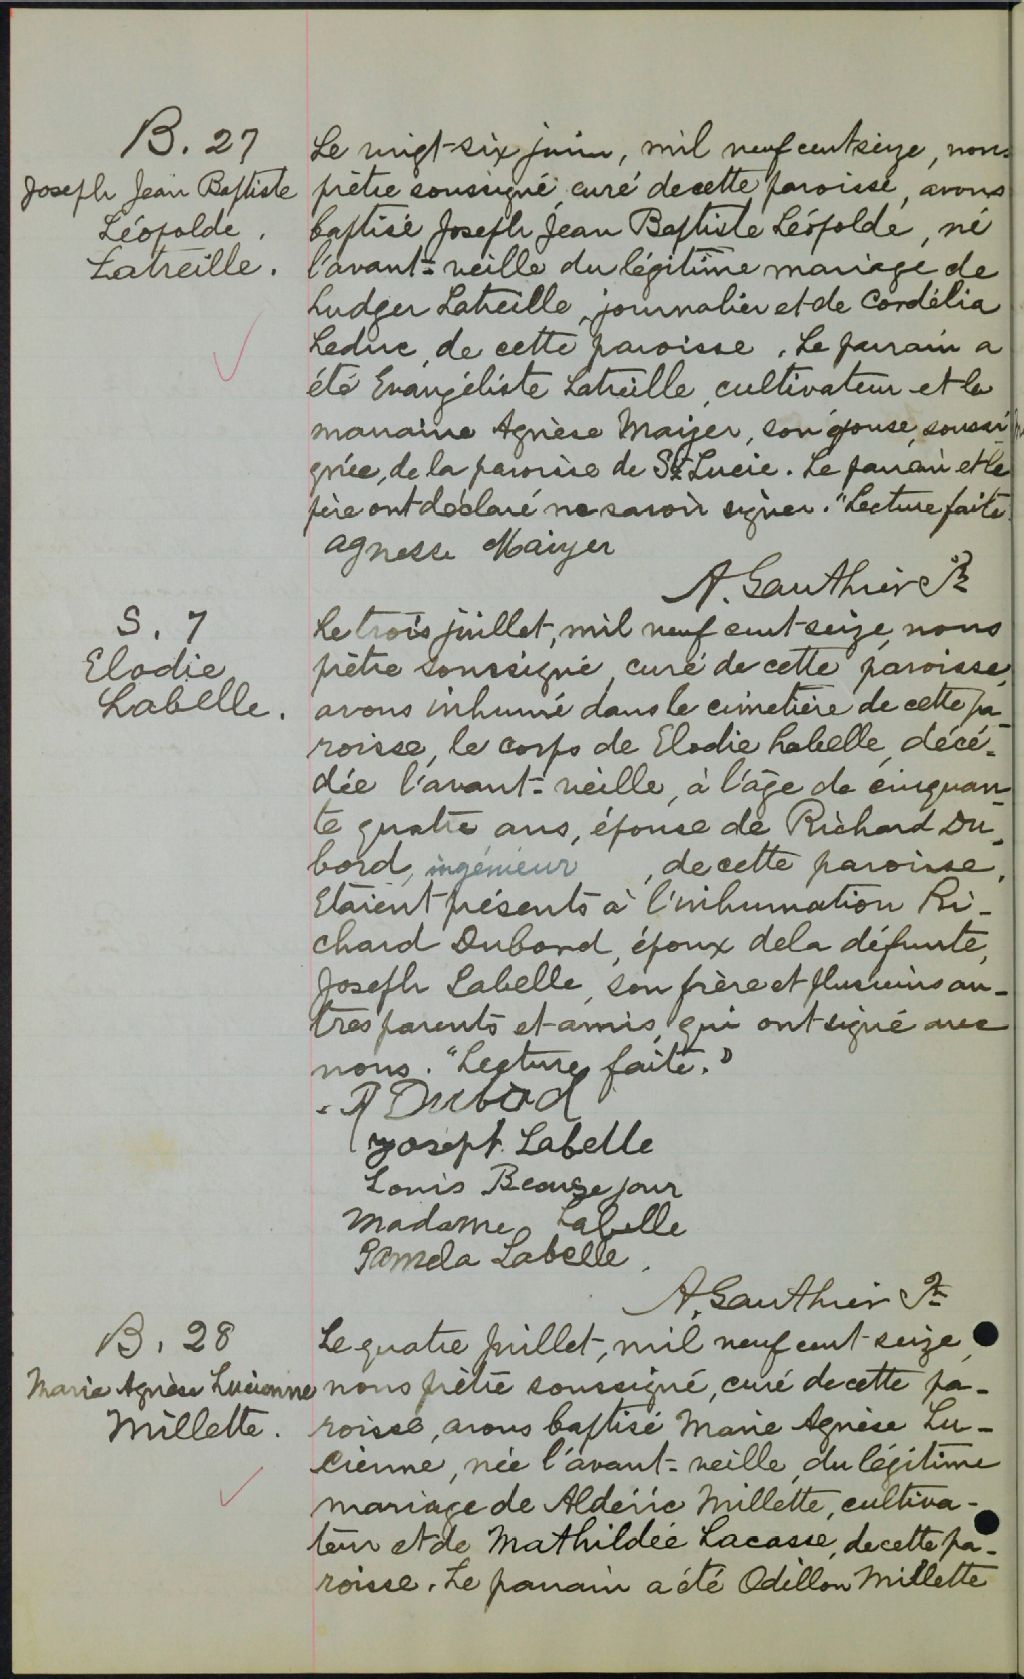 B. 27
Joseph Jean Baptiste
Léopolde.
Latreille.
Le vingt-six juin, mil neuf cent seize, nous
prêtre soussigné, curé de cette paroisse, avons
baptisé Joseph Jean Baptiste Léopolde, né
l'avant-veille du légitime mariage de
Ludger Latreille, journalier et de Cordélia
Leduc, de cette paroisse. Le parrain a
été Evangéliste Latreille, cultivateur et la
marraine Agnèse Maijer, son épouse, soussi
gnée, de la paroisse de Ste Lucie. Le parrain et le
père ont déclaré ne savoir signer. "Lecture faite
agnesse Maiyer
A. Gauthier Ptre
S. 7
Elodie
Labelle.
Le trois juillet, mil neuf cent seize, nous
prêtre soussigné, curé de cette paroisse,
avons inhumé dans le cimetière de cette pa-
roisse, le corps de Elodie Labelle, décé-
dée l'avant-veille, à l'âge de cinquan-
te quatre ans, épouse de Richard Du-
bord, ingénieur, de cette paroisse.
Etaient présents à l'inhumation Ri-
chard Dubord, époux de la défunte,
Joseph Labelle, son frère et plusieurs au-
tres parents et amis, qui ont signé avec
nous. "Lecture faite."
R Dubord
Joseph Labelle
Louis Beausejour
Madame Labelle
Pamela Labelle.
A. Gauthier Ptre
B. 28
Marie Agnèse Lucienne
Millette.
Le quatre juillet, mil neuf cent seize,
nous prêtre soussigné, curé de cette pa-
roisse, avons baptisé Marie Agnèse Lu-
cienne, née l'avant-veille, du légitime
mariage de Aldéric Millette, cultiva-
teur et de Mathildée Lacasse, de cette pa-
roisse. Le parrain a été Odillon Millette